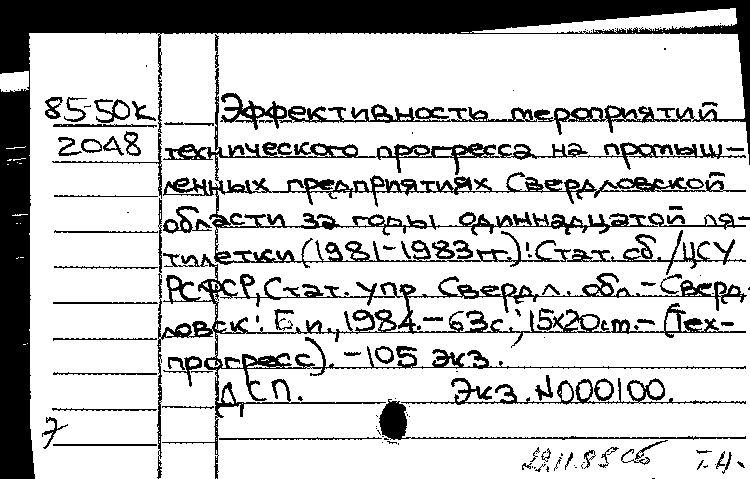 85-50к Эффективность мероприятий
2048 технического прогресса на промыш-
ленных предприятиях Свердловской
области за годы одиннадцатой пя-
тилетки (1981-1983 гг.): Стат. сб. / ЦСУ
РСФСР, Стат. упр. Свердл. обл. - Сверд-
ловск: Б.и., 1984. - 63с.; 15х20см. - (Тех-
прогресс). - 105 экз.
ДСП. Экз. N000100.
7
Т.Н.